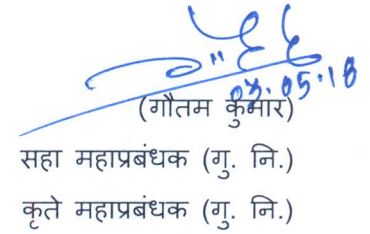 (गौतम कुमार)
सहा महाप्रबंधक (गु. नि.)
कृते महाप्रबंधक (गु. नि.)